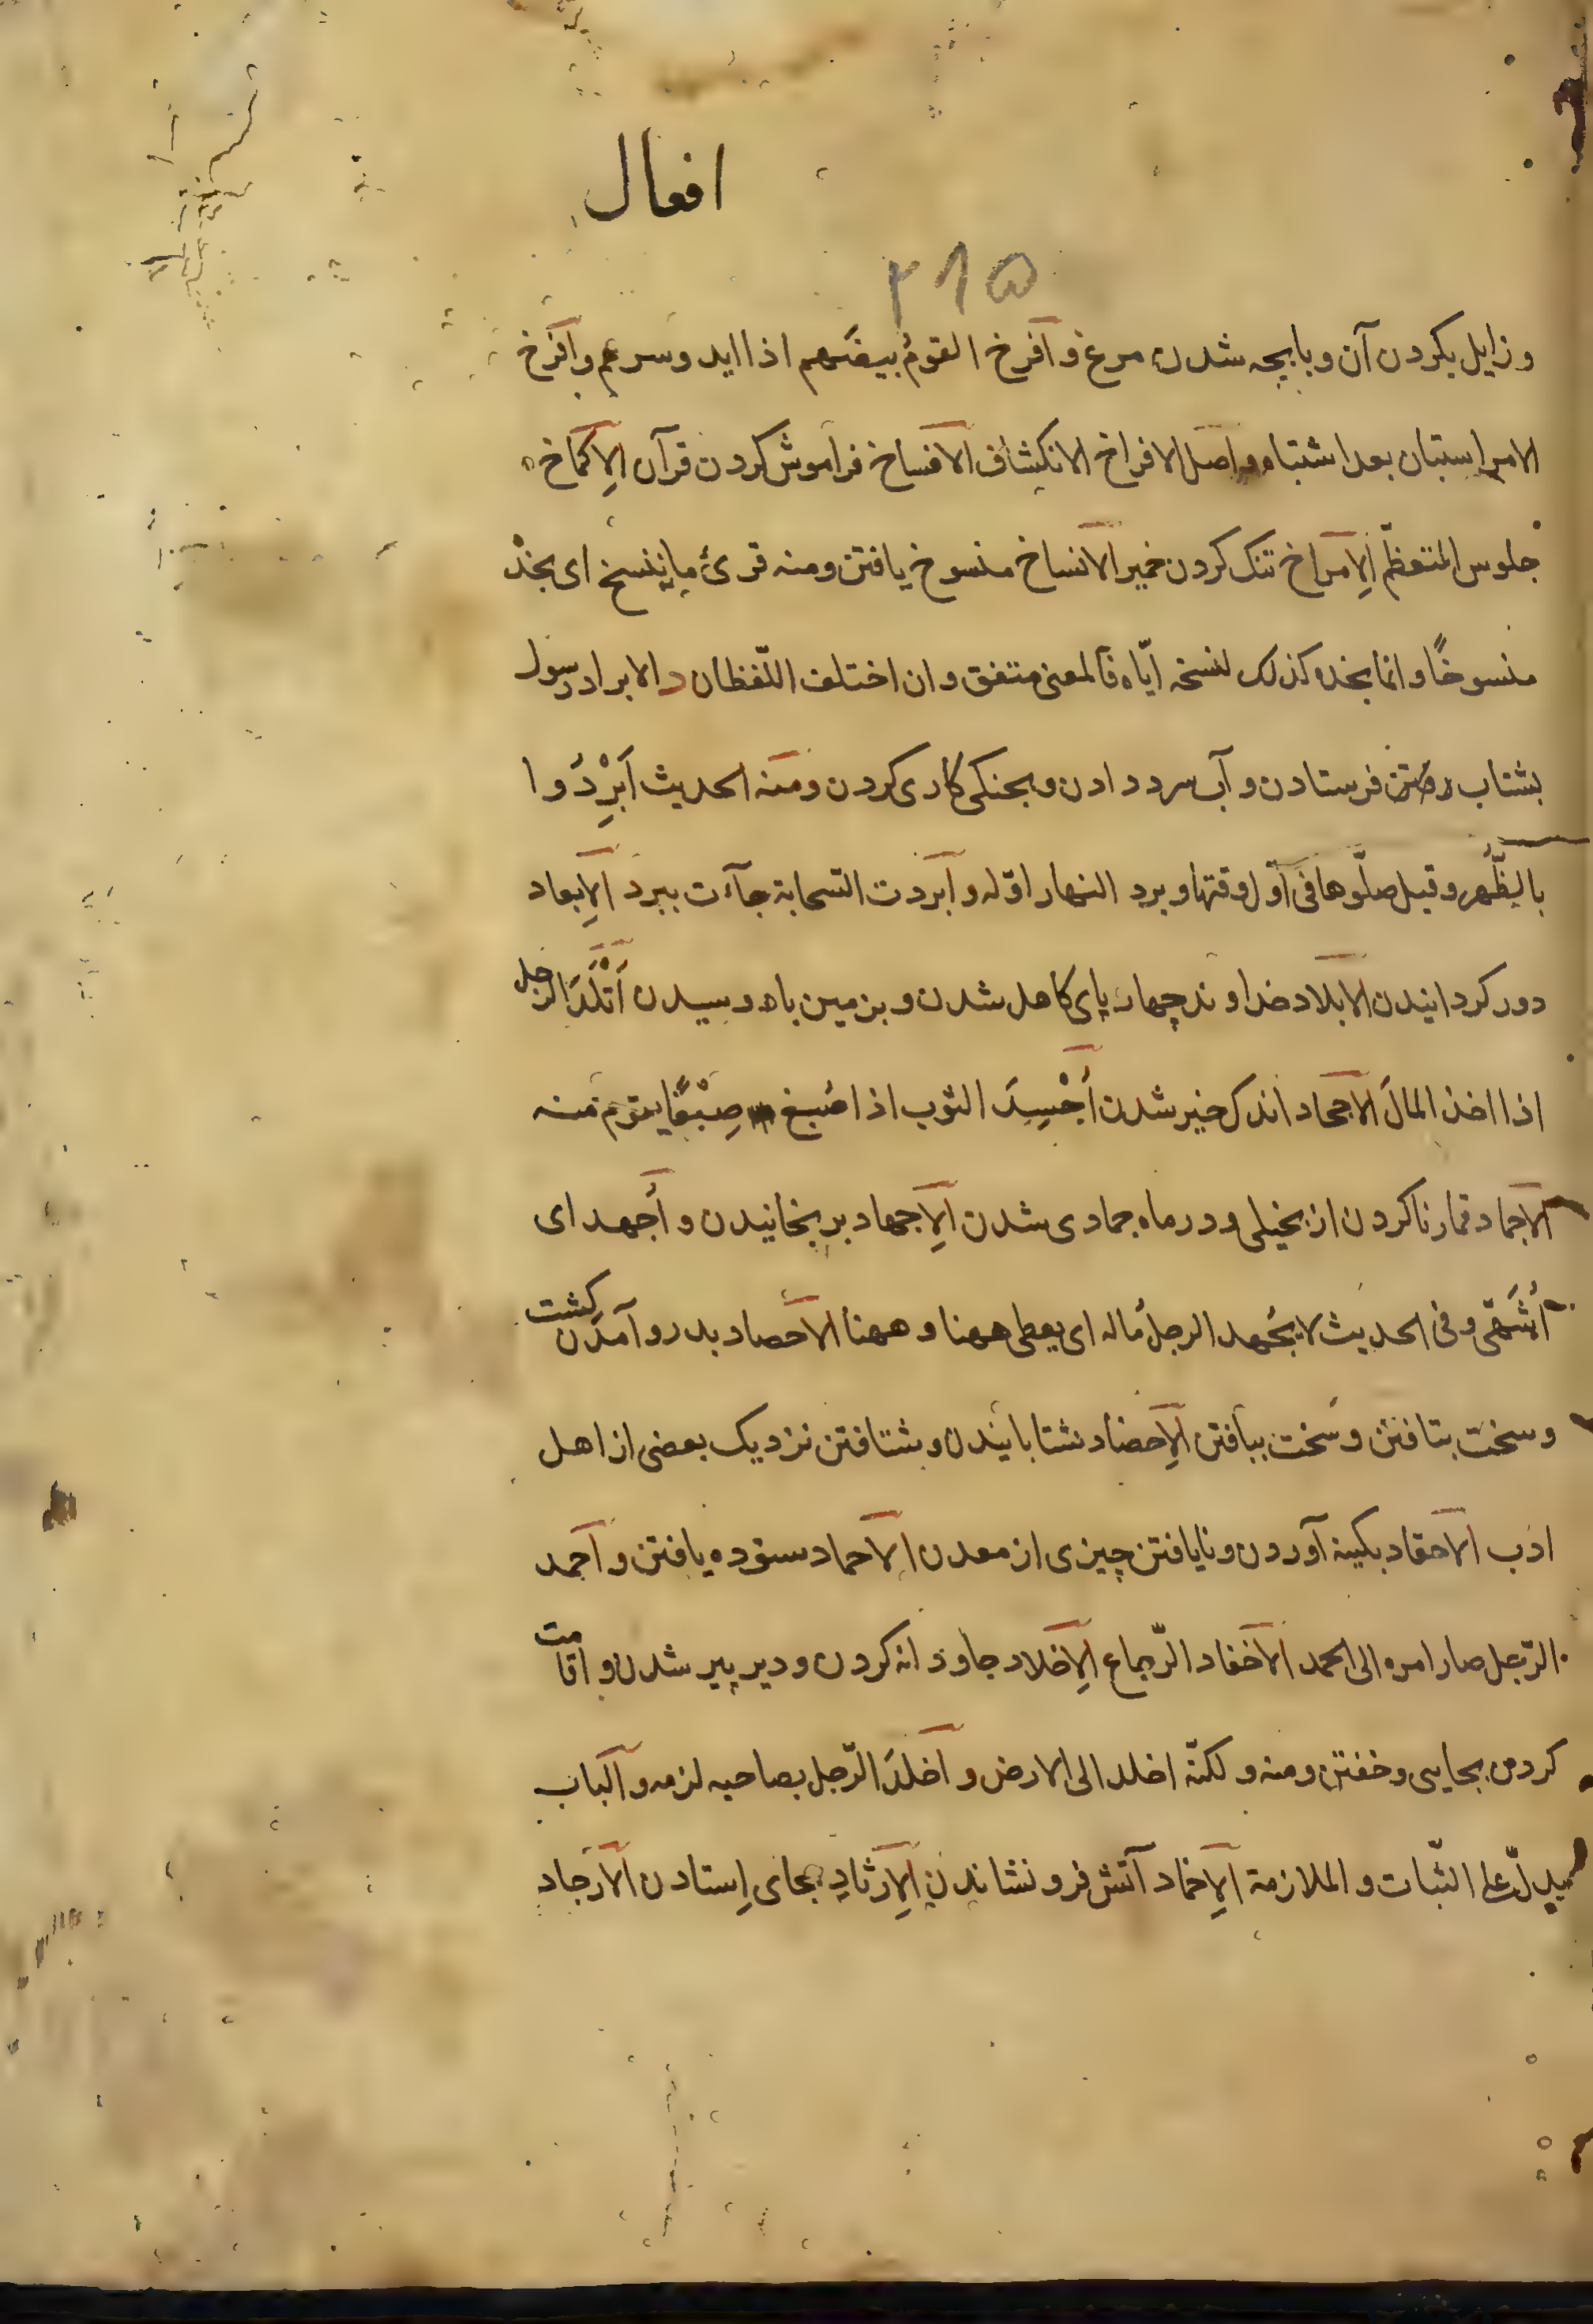 افعال
۲۱۵
و زایل بکردن آن و با بچه شدن مرغ و افرخ القومُ بیضَهم اذا ابد و سرهم و افرخ
الامر استبان بعد اشتباه و اصل الافراخ الانکشاف الافساخ فراموش کردن قرآن الاِکماخ
جلوس المتعظّم الاِمراخ تنک کردن خمیر الانساخ منسوخ یافتن ومنه قرئ ما ننسخ ای نجدْ
منسوخًا و انما نجده کذلک لنسخه ایّاه فالمعنی متفق و ان اختلف اللّفظان د الابراد رسول
بشتاب فرستادن و آب سرد دادن و بخنکی کاری کردن ومنه الحدیث اَبْرِدُوا
بالظُّهر وقیل صلّوها فی اوّل وقتها و برد النهار اوّله و ابردت السّحابة جآءت ببرد الاِبعاد
دور کردانیدن الابلاد خداوند چهارپای کاهل شدن و بزمین باه وسیدن اَتْلَدَ الرّجل
اذا اخذ المالَ الاجحاد اندک خیر شدن اُجْسِدَ الثوب اذا صُبغ صِبْغًا یقوم منه
الاجماد قمار ناکردن از بخیلی و در ماه جمادی شدن الاِجهاد برنجانیدن و اُجهد ای
اُشهّی وفی الحدیث لا یُجهد الرجلُ ماله ای یعطی ههنا و ههنا الاحصاد بدرو آمدن کشت
و سخت بتافتن و سخت ببافتن الاِحفاد بشتابانیدن و بشتافتن نزدیک بعضی از اهل
ادب الاحقاد بکینه آوردن و نایافتن چیزی از معدن الاحماد ستوده یافتن و احمد
الرّجل صار امره الی الحمد الاخفاد الاِخلاد جاودانه کردن و دیر پیر شدن و اقامت
کردن بجایی و خفتن ومنه و لکنّه اخلد الی الارض و اخلدَ الرّجل بصاحبه لزمه و الباب
یدلّ علی الثّبات و الملازمة الاِخماد آتش فرو نشاندن الاِرثاد بجای اِستادن الارجاد